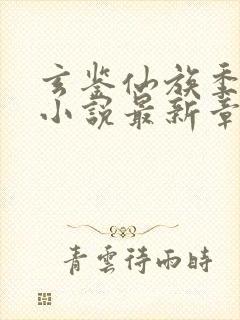 玄鉴仙族季
小説最新章
青雲待雨時